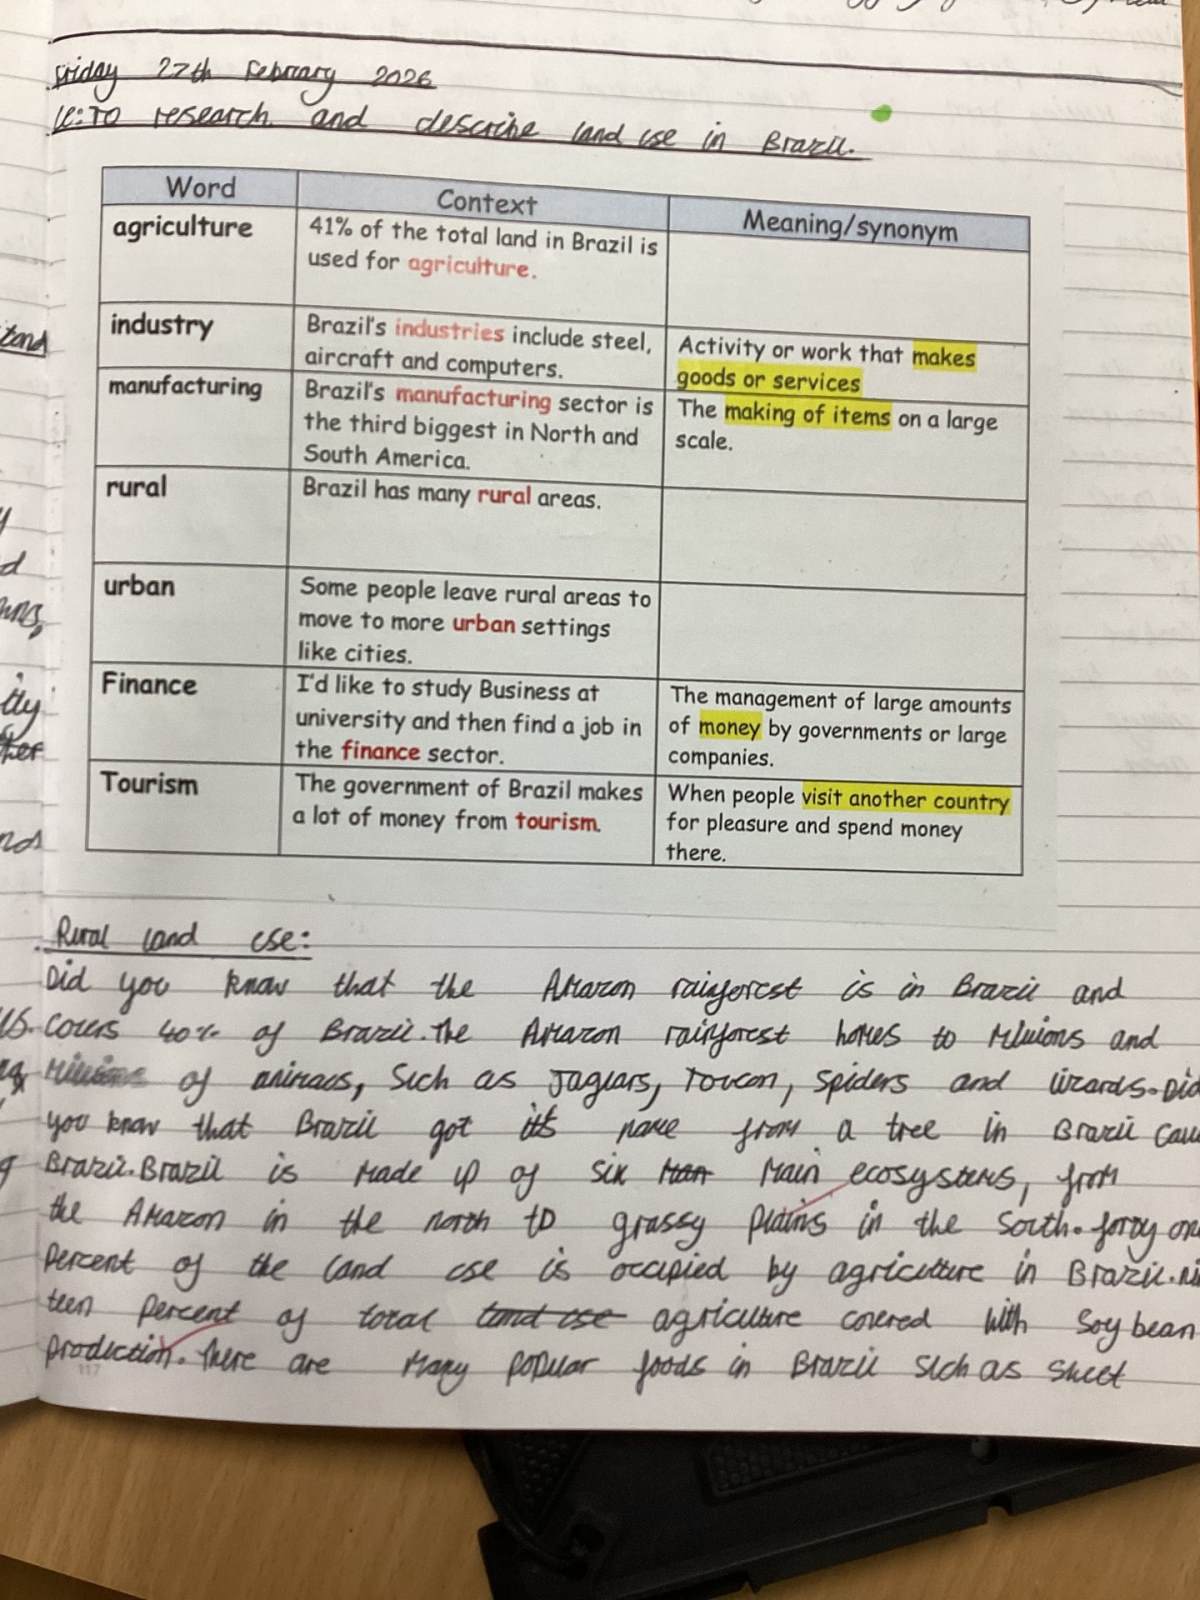 Friday 27th February 2026
LC: To research and describe land use in Brazil.
Word Context Meaning/synonym
agriculture 41% of the total land in Brazil is
used for agriculture.
industry Brazil's industries include steel,
aircraft and computers.
Activity or work that makes
goods or services
manufacturing Brazil's manufacturing sector is
the third biggest in North and
South America.
The making of items on a large
scale.
rural Brazil has many rural areas.
urban Some people leave rural areas to
move to more urban settings
like cities.
Finance I'd like to study Business at
university and then find a job in
the finance sector.
The management of large amounts
of money by governments or large
companies.
Tourism The government of Brazil makes
a lot of money from tourism.
When people visit another country
for pleasure and spend money
there.
Rural land use:
Did you know that the Amazon rainforest is in Brazil and
covers 40% of Brazil. The Amazon rainforest homes to millions and
millions of animals, such as Jaguars, Toucan, spiders and lizards. Did
you know that Brazil got its name from a tree in Brazil
Brazil. Brazil is made up of six main ecosystems, from
the Amazon in the north to grassy plains in the south. forty
percent of the land use is occupied by agriculture in Brazil.
teen percent of total land use agriculture covered with soybean
production. There are many popular foods in Brazil such as sweet
117